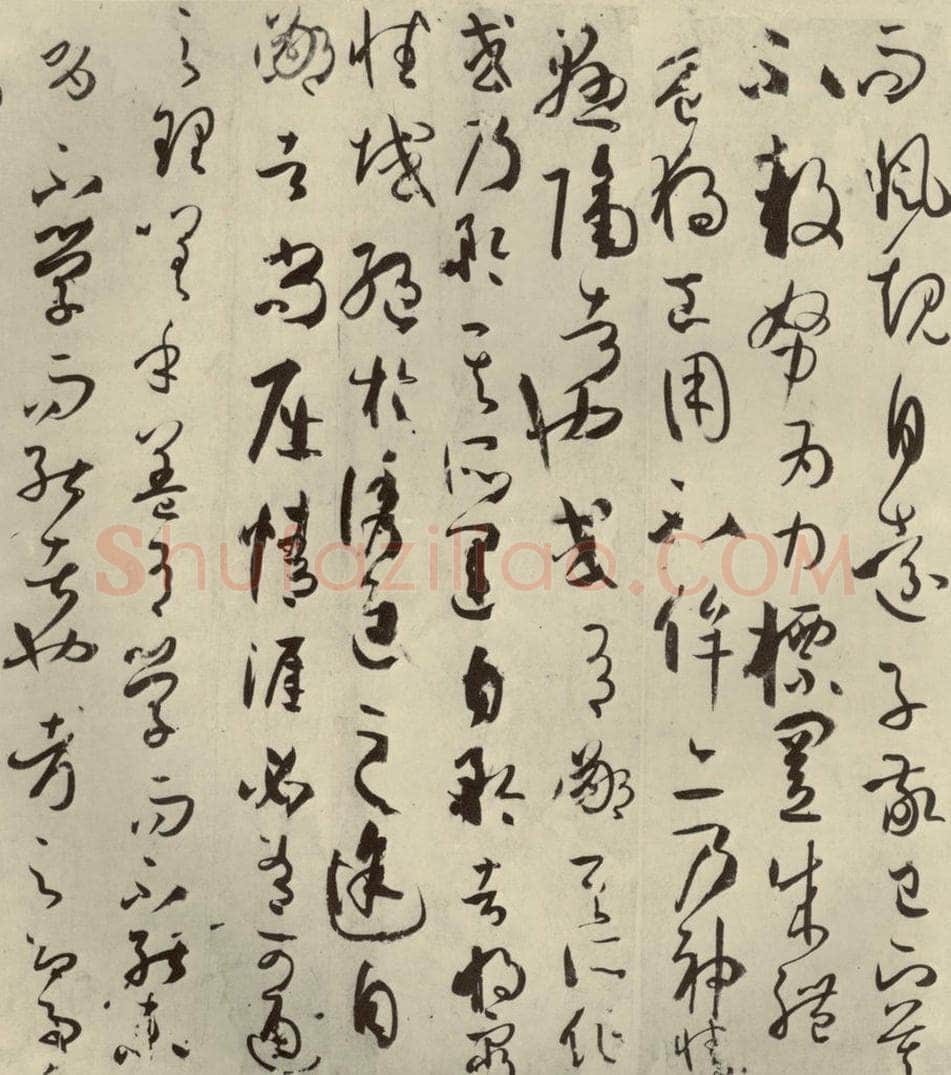 而風規自遠子敬已下莫
不鼓努為力標置成體
豈獨工用不侔亦乃神情
懸隔者也或有鄙其所作
或乃矜其所運自矜者將窮
性域絕於誘進之途自
鄙者尚屈情涯必有可通
之理嗟乎蓋有學而不能未
有不學而能者也考之即事
Shufaziliao.COM